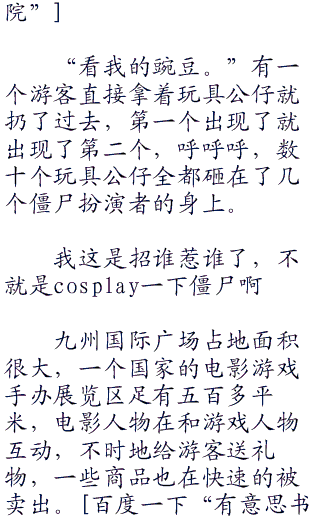 院”]
“看我的豌豆。”有一
个游客直接拿着玩具公仔就
扔了过去，第一个出现了就
出现了第二个，呼呼呼，数
十个玩具公仔全都砸在了几
个僵尸扮演者的身上。
我这是招谁惹谁了，不
就是cosplay一下僵尸啊
九州国际广场占地面积
很大，一个国家的电影游戏
手办展览区足有五百多平
米，电影人物在和游戏人物
互动，不时地给游客送礼
物，一些商品也在快速的被
卖出。[百度一下“有意思书